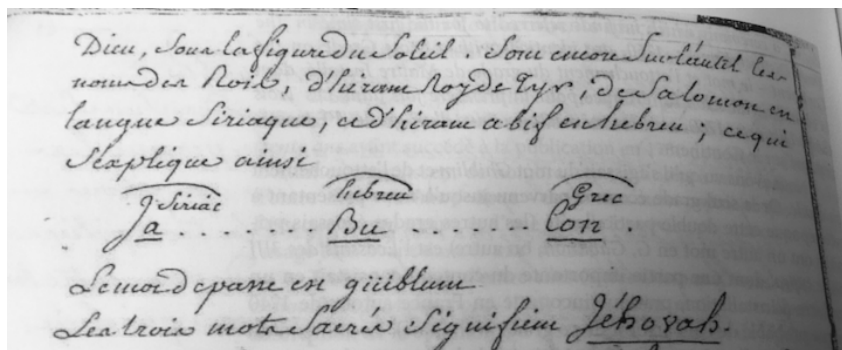 Dieu, Sous la figure du Soleil. Sont encore Sur l'autel les
noms des Rois, d'hiram Roy de Tyr, de Salomon en
langue Siriaque, et d'hiram abif en hebreu; ce qui
S'explique ainsi
Siriac hebreu Grec
Ja ....... Bu ....... Lon
Le mot de passe est guiblum
Les trois mots Sacrés Signifient Jéhovah.